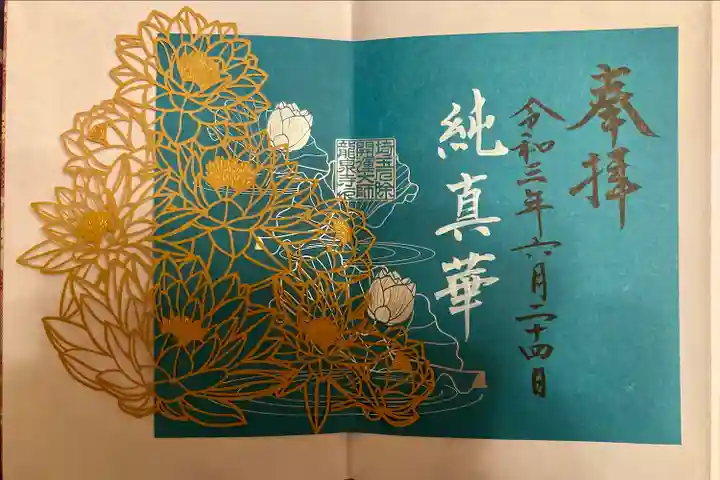 奉拝
令和三年六月二十四日
純真華
埼玉厄除
開運大師
龍泉寺印